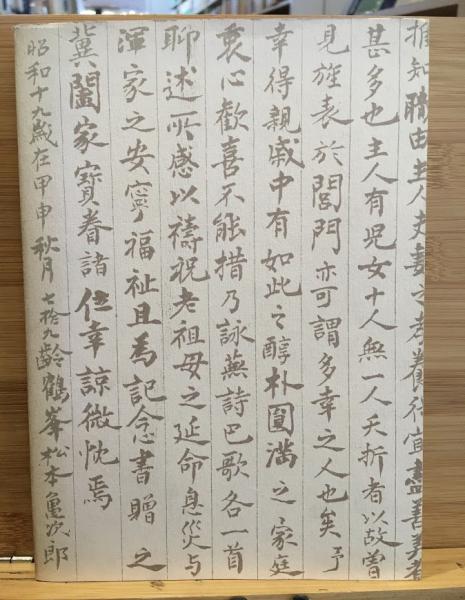 推知職由主人夫妻之孝養得宜盡善美者
甚多也主人有児女十人無一人夭折者以故曽
見旌表於閭門亦可謂多幸之人也矣予
幸得親戚中有如此之醇朴圓満之家庭
衷心歓喜不能措乃詠蕪詩巴歌各一首
聊述所感以祷祝老祖母之延命息災与
渾家之安寧福祉且為記念書贈之
冀闔家寳眷諸位幸諒微忱焉
昭和十九歳在甲申秋月七拾九齢鶴峯松本亀次郎